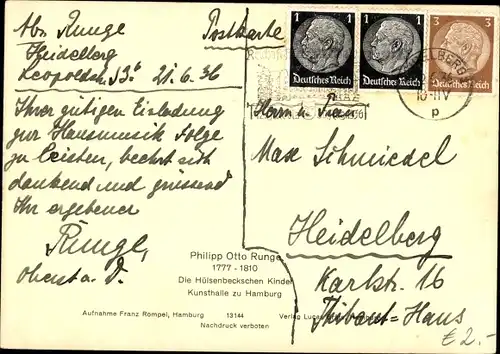 Abs. Runge
Heidelberg
Leopoldstr. 53.b 21.6.36
Postkarte
Ihrer gütigen Einladung
zur Hausmusik Folge
zu leisten, beehrt sich
dankend und grüssend
Ihr ergebener
Runge,
Oberst a. D.
Philipp Otto Runge
1777 - 1810
Die Hülsenbeckschen Kinder
Kunsthalle zu Hamburg
Aufnahme Franz Rompel, Hamburg 13144 Verlag
Nachdruck verboten
1 1 3
Deutsches Reich Deutsches Reich Deutsches Reich
10-11V
p
Herrn u. Frau
Max Schmiedel
Heidelberg
Karlstr. 16
Thibaut-Haus
€ 2.-